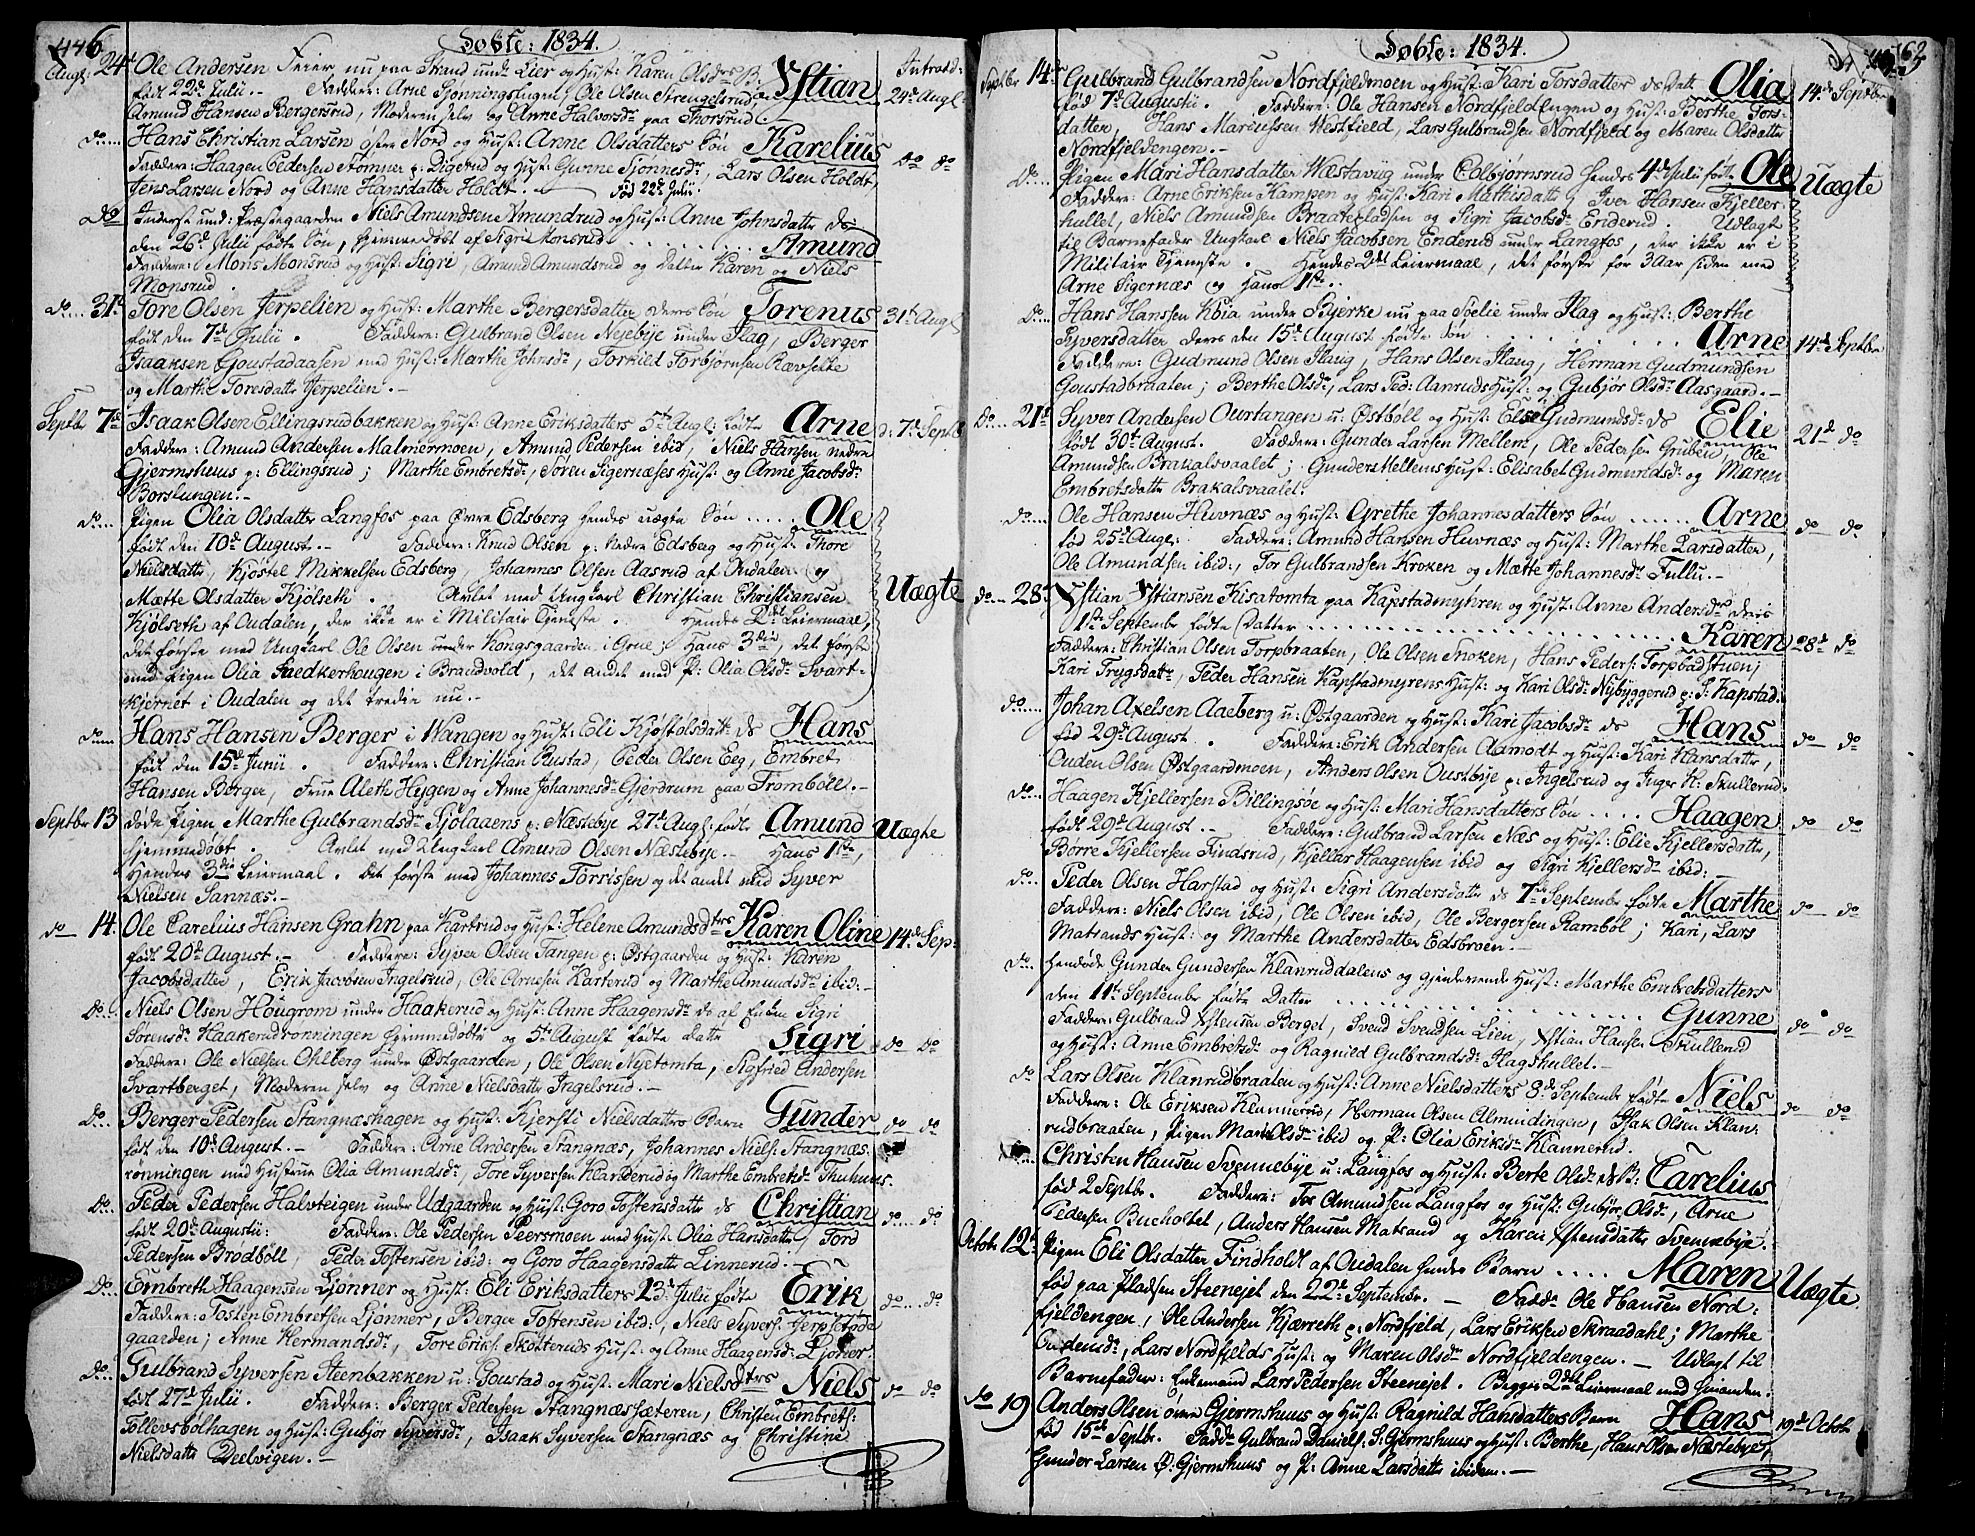 446
Døbte: 1834.
Augl: 24d Ole Andersen Feier nu paa Strand unde Lier og Hust: Karen Olsdrs B. Xstian Introd:
født 22d Julii. - Faddere: Arne Ole Olsen Strengelsrud, 24d Augl
Amund Hansen Bergersrud, Moderen selv og Anne Halvorsdr paa Thorsrud.
do Hans Christian Larsen øfre Nord og Hust: Anne Olsdatters Søn Karelius do do
Faddere: Haagen Pedersen Stømner p: Digerud og Hust: Gunne Tjønnesdr, Lars Olsen Holdt,
Jens Larsen Nord og Anne Hansdatter Holdt. - fød 22d Julii.
Do Inderst und: Præstegaarden Niels Amundsen Amundrud og Hust: Anne Johnsdatter ds
den 26d Julii fødte Søn, Hjemmedøbt af Sigri Monsrud ........ Amund
Faddere: Mons Monsrud og Hust: Sigri, Amund Amundsrud og Datter Karen og Niels
Monsrud.
do 31t Tore Olsen Jerpelien og Hust: Marthe Bergersdatter deres Søn Torenus 31t Augl
født den 7d Julii. Faddere: Gulbrand Olsen Nyebye under Flag, Berger
Isaaksen Goustadaasen med Hust: Marthe Johnsdr, Torkild Torbjørnsen Rævholte
og Marthe Toresdatte Jerpelien. -
Septbr 7de Isaak Olsen Ellingsrudbakken og Hust: Anne Eriksdatters 5t Augl: fødte Arne d: 7d Septb
Faddere: Amund Andersen Malmermoen, Amund Pedersen ibid, Niels Hansen nedre
Gjermshuus p: Ellingsrud; Marthe Embretsdr, Søren Sigernæses Hust: og Anne Jacobsdr
Borslungen. -
do Pigen Olia Olsdatter Langfos paa Øvre Edsberg hendes uægte Søn .... Ole
født den 10d August. - Faddere: Knud Olsen p: Nedre Edsberg og Hust: Thore
Nielsdatte, Kjøstel Mikkelsen Edsberg, Johannes Olsen Aasrud af Oudalen og
Mætte Olsdatter Kjølseth. Avlet med Ungkarl Christian Christiansen Uægte
Kjølseth af Oudalen, der ikke er i Militair Tjeneste. Hendes 2det Leiermaal,
det første med Ungkarl Ole Olsen under Kongsgaarden i Grue; Hans 3die, det første
med Pigen Olia Saedkerhougen i Brandvold, det andet med P: Olia Olsdr Svart-
kjernet i Oudalen og det tredie nu. -
do Hans Hansen Berger i Wangen og Hust: Eli Kjøstolsdatte ds Hans
født den 15d Junii. Faddere: Christian Rustad, Peder Olsen Eeg, Embret
Hansen Berger, Frue Aleth Heygen og Anne Johannesdr Gjerdrum paa Tromböl. -
Septbr 13 døde Pigen Marthe Gulbrandsdr Sjølaaens p: Næstebye 27d Augl: fødte Amund Uægte
hjemmedøbt. Avlet med Ungkarl Amund Olsen Næstebye. - Hans 1ste,
Hendes 3die Leiermaal. Det første med Johannes Torrissen og det andet med Syver
Nielsen Sannæs. -
do 14. Ole Carelius Hansen Grahn paa Kartrud og Hust: Helene Amundsdtrs Karen Oline 14d Sep:
født 20d August. - Faddere: Syver Olsen Tangen p: Østgaarden og Hust: Karen
Jacobsdatter, Erik Jacobsen Ingelsrud, Ole Arnesen Karterud og Marthe Amundsdr ibid: -
Do. Niels Olsen Hougrom under Haakerud og Hust: Anne Haagensdr ds af Enken Sigri
Sørensdr Haakerudrønningen hjemmedøbte og 5t August fødte Datte Sigri do do
Faddere: Ole Nielsen Ohlberg under Østgaarden, Ole Olsen Nyetomta, Sigfried Andersen
Svartberget, Moderen selv og Anne Nielsdatte Ingelsrud. -
Do. Berger Pedersen Stangnæshagen og Hust: Kjersti Nielsdatters Barn Gunder do do
født den 10d August. - Faddere: Arne Andersen Stangnæs, Johannes Niels: Stangnæs-
rønningen med Hustrue Olia Amundsdr, Tore Syversen Klanderud og Marthe Embretsdr Thuhuus.
Do. Peder Pedersen Halvteigen under Udgaarden og Hust: Goro Tostensdatte ds Christian do do
født 20d Augustii: Faddere: Ole Pedersen Peersmoen med Hust: Olia Hansdatte, Tord
Pedersen Brodböll Peder Tostensen ibid: og Goro Haagensdatte Linnerud. -
Do. Embreth Haagensen Ljønner og Hust: Eli Eriksdatters 23d Julii fødte Erik do do
Faddere: Tosten Embretsen Ljønner, Berger Tostensen ibid:, Niels Syvers: Jerpset
gaarden; Anne Hermandsdr, Tore Eriks: Skotteruds Hust: og Anne Haagensdr: Ljønner.
Do. Gulbrand Syversen Steenbakken u: Goustad og Hust: Mari Nielsdtrs Niels do do
født 27d Julii. Faddere: Berger Pedersen Stangnæssæteren, Christen Embrets:
Tollevsbölhagen og Hust: Gubjør Syversdr, Isaak Syversen Stangnæs og Christine
Nielsdatte Deelvigen. -
Døbte: 1834.
163
Septbr 14 Gulbrand Gulbrandsen Nordfjeldmoen og Hust: Kari Torsdatter ds Datte Olia 14de Septbr
fød 7d Augustii. Faddere: Ole Hansen Nordfjeldengen og Hust: Berthe Tors-
datter, Hans Mariussen Westfield, Lars Gulbrandsen Nordfjeld og Maren Olsdatte
Nordfjeldengen. -
Do Pigen Mari Hansdatter Wæstavug under Colbjørnsrud hendes 4d Julii fødte Ole Uægte
Faddere: Arne Eriksen Kampen og Hust: Kari Mathisdatte, Iver Hansen Kjeller-
hullet, Niels Amundsen Braatepladsen og Sigri Jacobsdr Enderud. Udlagt
til Barnefader Ungkarl Niels Jacobsen Enderud under Langfos, der ikke er i
Militair Tjeneste. Hendes 2det Leiermaal, det første for 3 Aar siden med
Arne Sigernæs og hans 1ste.
Do Hans Hanssen Kbia under Bjerke nu paa Soelie under Flag og Hust: Berthe
Syversdatter deres den 15d August fødte Søn ........ Arne 14d Septbr
Faddere: Gudmund Olsen Flaug, Hans Olsen Flaug, Herman Gudmundsen
Goustadbraaten; Berthe Olsdr, Lars Ped: Aanruds Hust: og Gubjør Olsdr Aasgaard. -
Do 21d Syver Andersen Ourtangen u: Østböll og Hust: Else Gudmundsdr ds Elie 21d do
født 30d August. Faddere: Gunder Larsen Mellem, Ole Pedersen Gruben, Ole
Amundsen Brakalsvaalet; Gunders Mellems Hust: Elisabet Gudmundsdr og Maren
Embretsdatte Brakalsvaalet:
do Ole Hansen Huvnæs og Hust: Grethe Johannesdatters Søn ...... Arne do do
fød 25d Augl: Faddere: Amund Hansen Huvnæs og Hust: Marthe Larsdatter,
Ole Amundsen ibid:, Tor Gulbrandsen Kroken og Mætte Johannesdr Tullu. -
do 28d Xstian Xstiansen Kisatomta paa Kapstadmyhren og Hust: Anne Andersdr deres
1ste September fødte Datter ........ Karen 28d do
Faddere: Christian Olsen Torpbraaten, Ole Olsen Snoken, Hans Peders: Torpbadstuen,
Kari Trygsdatte, Peder Hansen Kapstadmyrens Hust: og Kari Olsdr Nybyggerud p: S: Kapstad
do Johan Axelsen Aaeberg u: Østgaarden og Hust: Kari Jacobsdr ds Hans do do
fød 29d August. Faddere: Erik Andersen Aamodt og Hust: Kari Hansdatte,
Ouden Olsen Østgaardmoen, Anders Olsen Oustbye p: Ingelsrud og Inger H: Skullerud:
do Haagen Kjellersen Billingsöe og Hust: Mari Hansdatters Søn .... Haagen do do
født 29d August. - Faddere: Gulbrand Larsen Næs og Hust: Elie Kjellersdatte,
Børre Kjellersen Findsrud, Kjellar Haagensen ibid og Sigri Kjellersdr ibid: -
do Peder Olsen Harstad og Hust: Sigri Andersdatte ds 7de September fødte Marthe do do
Faddere: Niels Olsen ibid, Ole Olsen ibid, Ole Bergersen Ramböl; Kari, Lars
Matrands Hust: og Marthe Andersdatter Edsbroen. -
do Hendøde Gunder Gundersen Klanruddalens og gjenlevende Hust: Marthe Embretsdatters
den 11te September fødte Datter ........ Gunne do do
Faddere: Gulbrand Xstensen Berget, Svend Svendsen Lien, Xstian Hansen Skullerud
og Hust: Anne Embretsdr og Ragnild Gulbrandsdr Flagshullet. -
do Lars Olsen Klanrudbraaten og Hust: Anne Nielsdatters 8d September fødte Niels do do
Faddere: Ole Eriksen Klannerud, Herman Olsen Almindingen, Isak Olsen Klan-
rudbraaten, Pigen Mari Olsdr ibid og P: Olia Eriksdr Klannerud.
Christen Hansen Svennebye u: Langfos og Hust: Berte Olsdr ds B: Carelius
fød 2 Septbr. Faddere: Tor Amundsen Langfos og Hust: Gubjør Olsdr, Arne
Pedersen Bucholtet, Anders Hansen Matrand og Karen Xstensdatte Svennebye.
Octobr 12d Pigen Eli Olsdatter Findholdt af Oudalen hendes Barn .... Maren Uægte
fød paa Pladsen Steenejet den 22d Septembr. - Fadde Ole Hansen Nord-
fjeldengen, Ole Andersen Kjærreth p: Nordfjeld, Lars Eriksen Skraadahl; Marthe
Oudensdr, Lars Nordfjelds Hust: og Maren Olsdr Nordfjeldengen. - Udlagt til
Barnefader: Enkemand Lars Pedersen Steenejet. Begges 2det Leiermaal med hinanden.
do 19 Anders Olsen øvre Gjermshuus og Hust: Ragnild Hansdatters Barn Hans 19d Octobr
fød 15d Septbr. Fadde Gulbrand Daniels: S: Gjermshuus og Hust: Berthe, Hans Olsen Næstebye,
Gunder Larsen Ø: Gjermshuus og P: Anne Larsdatte ibidem. -